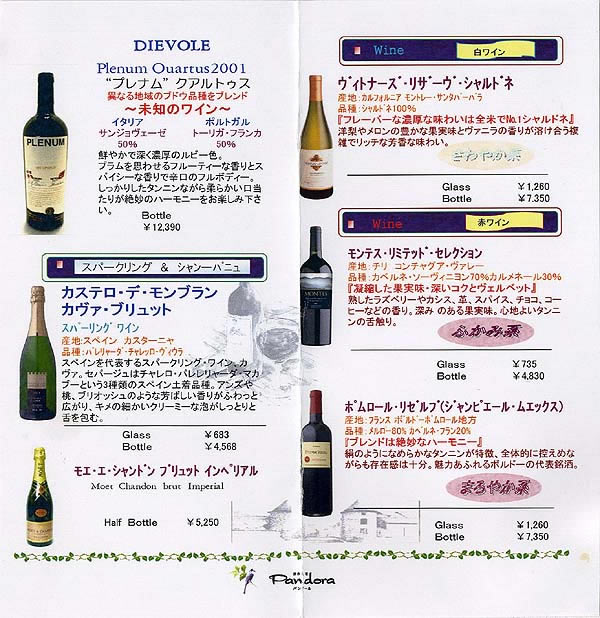 DIEVOLE
Plenum Quartus2001
“プレナム”クアルトゥス
異なる地域のブドウ品種をブレンド
～未知のワイン～
イタリア ポルトガル
サンジョヴェーゼ トーリガ・フランカ
50% 50%
PLENUM
鮮やかで深く濃厚のルビー色。
プラムを思わせるフルーティーな香りとス
パイシーな香りで辛口のフルボディー。
しっかりしたタンニンながら柔らかい口当
たりが絶妙のハーモニーをお楽しみ下さ
い。
Bottle
￥12,390
スパークリング & シャンーパニュ
カステロ・デ・モンブラン
カヴァ・ブリュット
スパーリング ワイン
産地:スペイン カスターニャ
品種:パレリャーダ・チャレッロ・ヴィウラ
スペインを代表するスパークリング・ワイン、カ
ヴァ。セパージュはチャレロ・パレリャーダ・マカ
ブーという3種類のスペイン土着品種。アンズや
桃、ブリオッシュのような芳ばしい香りがふわっと
広がり、キメの細かいクリーミーな泡がしっとりと
舌を包む。
Glass ￥683
Bottle ￥4,568
モエ・エ・シャンドン ブリュット インペリアル
Moet Chandon brut Imperial
Half Bottle ￥5,250
Wine 白ワイン
ヴィトナーズ・リザーヴ・シャルドネ
産地:カルフォルニア モントレー・サンタバーバラ
品種:シャルドネ100%
『フレーバーな濃厚な味わいは全米でNo.1シャルドネ』
洋梨やメロンの豊かな果実味とヴァニラの香りが溶け合う複
雑でリッチな芳香な味わい。
さわやか系
Glass ￥1,260
Bottle ￥7,350
Wine 赤ワイン
モンテス・リミテッド・セレクション
産地:チリ コンチャグア・ヴァレー
品種:カベルネ・ソーヴィニヨン70%カルメネール30%
『凝縮した果実味・深いコクとヴェルベット』
熟したラズベリーやカシス、革、スパイス、チョコ、コー
ヒーなどの香り。深み のある果実味。心地よいタンニ
ンの舌触り。
MONTES
ふかみ系
Glass ￥735
Bottle ￥4,830
ポムロール・リゼルブ(ジャンピエール・ムエックス)
産地:フランス ボルドーポムロール地方
品種:メルロー80% カベルネ・フラン20%
『ブレンドは絶妙なハーモニー』
絹のようになめらかなタンニンが特徴、全体的に控えめな
がらも存在感は十分。魅力あふれるボルドーの代表銘酒。
まろやか系
Glass ￥1,260
Bottle ￥7,350
Pandora
パンドーラ